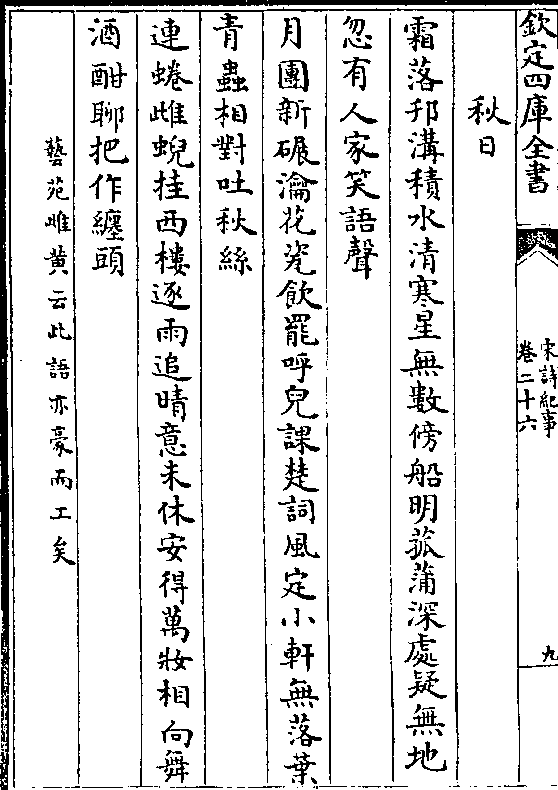 欽定四庫全書
宋詩紀事
卷二十六
九
秋日
霜落邗溝積水清寒星無數傍船明菰蒲深處疑無地
忽有人家笑語聲
月團新碾瀹花瓷飲罷呼兒課楚詞風定小軒無落葉
青蟲相對吐秋絲
連蜷雌蜺挂西樓逐雨追晴意未休安得萬妝相向舞
酒酣聊把作纏頭
藝苑雌黄云此語亦豪而工矣